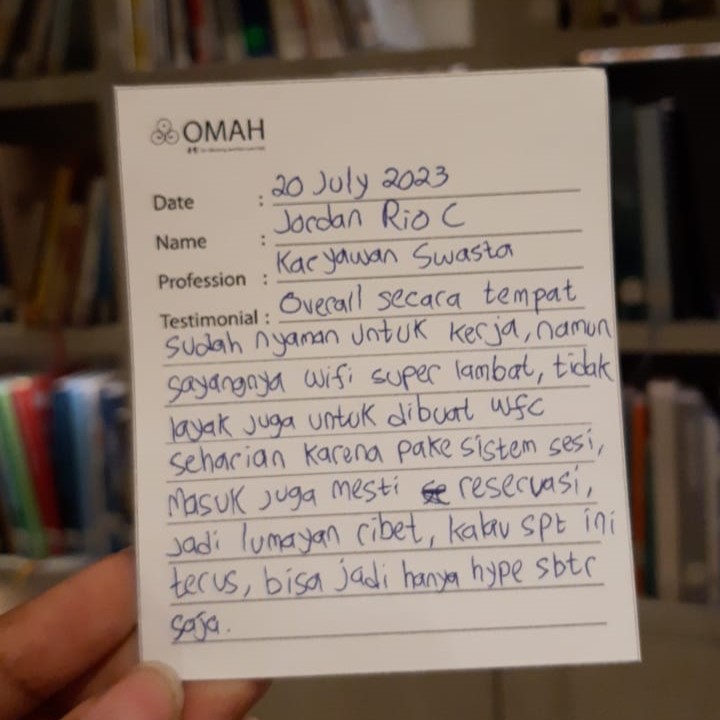 OMAH
Date : 20 July 2023
Name : Jordan Rio C
Profession : Karyawan Swasta
Testimonial : Overall secara tempat
sudah nyaman untuk kerja, namun
sayangnya wifi super lambat, tidak
layak juga untuk dibuat wfc
seharian karena pake sistem sesi,
Masuk juga mesti reservasi,
jadi lumayan ribet, kalau spt ini
terus, bisa jadi hanya hype sbtr
saja.